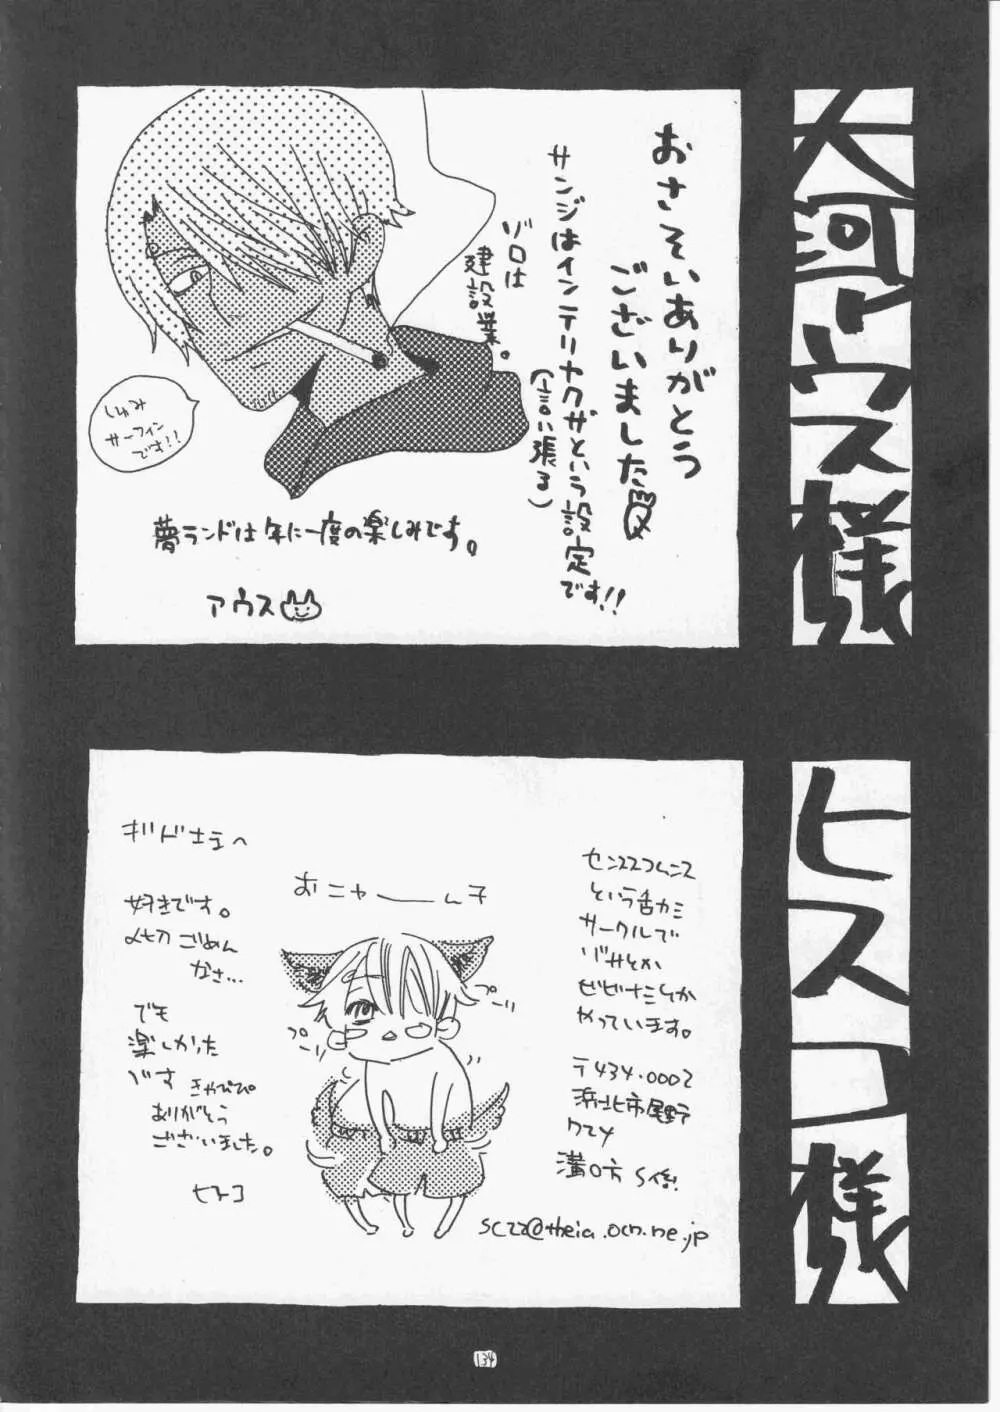 大河アウス様
おさそいありがとう
ございました
サンジはインテリヤクザという設定です!!
(言い張る)
ゾロは
建設業。
しじみ
サーフィン
です!!
夢ランドは年に一度の楽しみです。
アウス
ヒスコ様
センススコムニス
という
サークルで
ゾサとか
ゼビナミとか
やっています。
〒434-0002
浜北市尾野
溝口方 S係
sc22@theia.ocn.ne.jp
おニャーん子
プーリ
プーリ
好きです。
〆切ごめん
なさ…
でも
楽しかった
です
きゃぴぴ
ありがとう
ございました。
ヒスコ
134